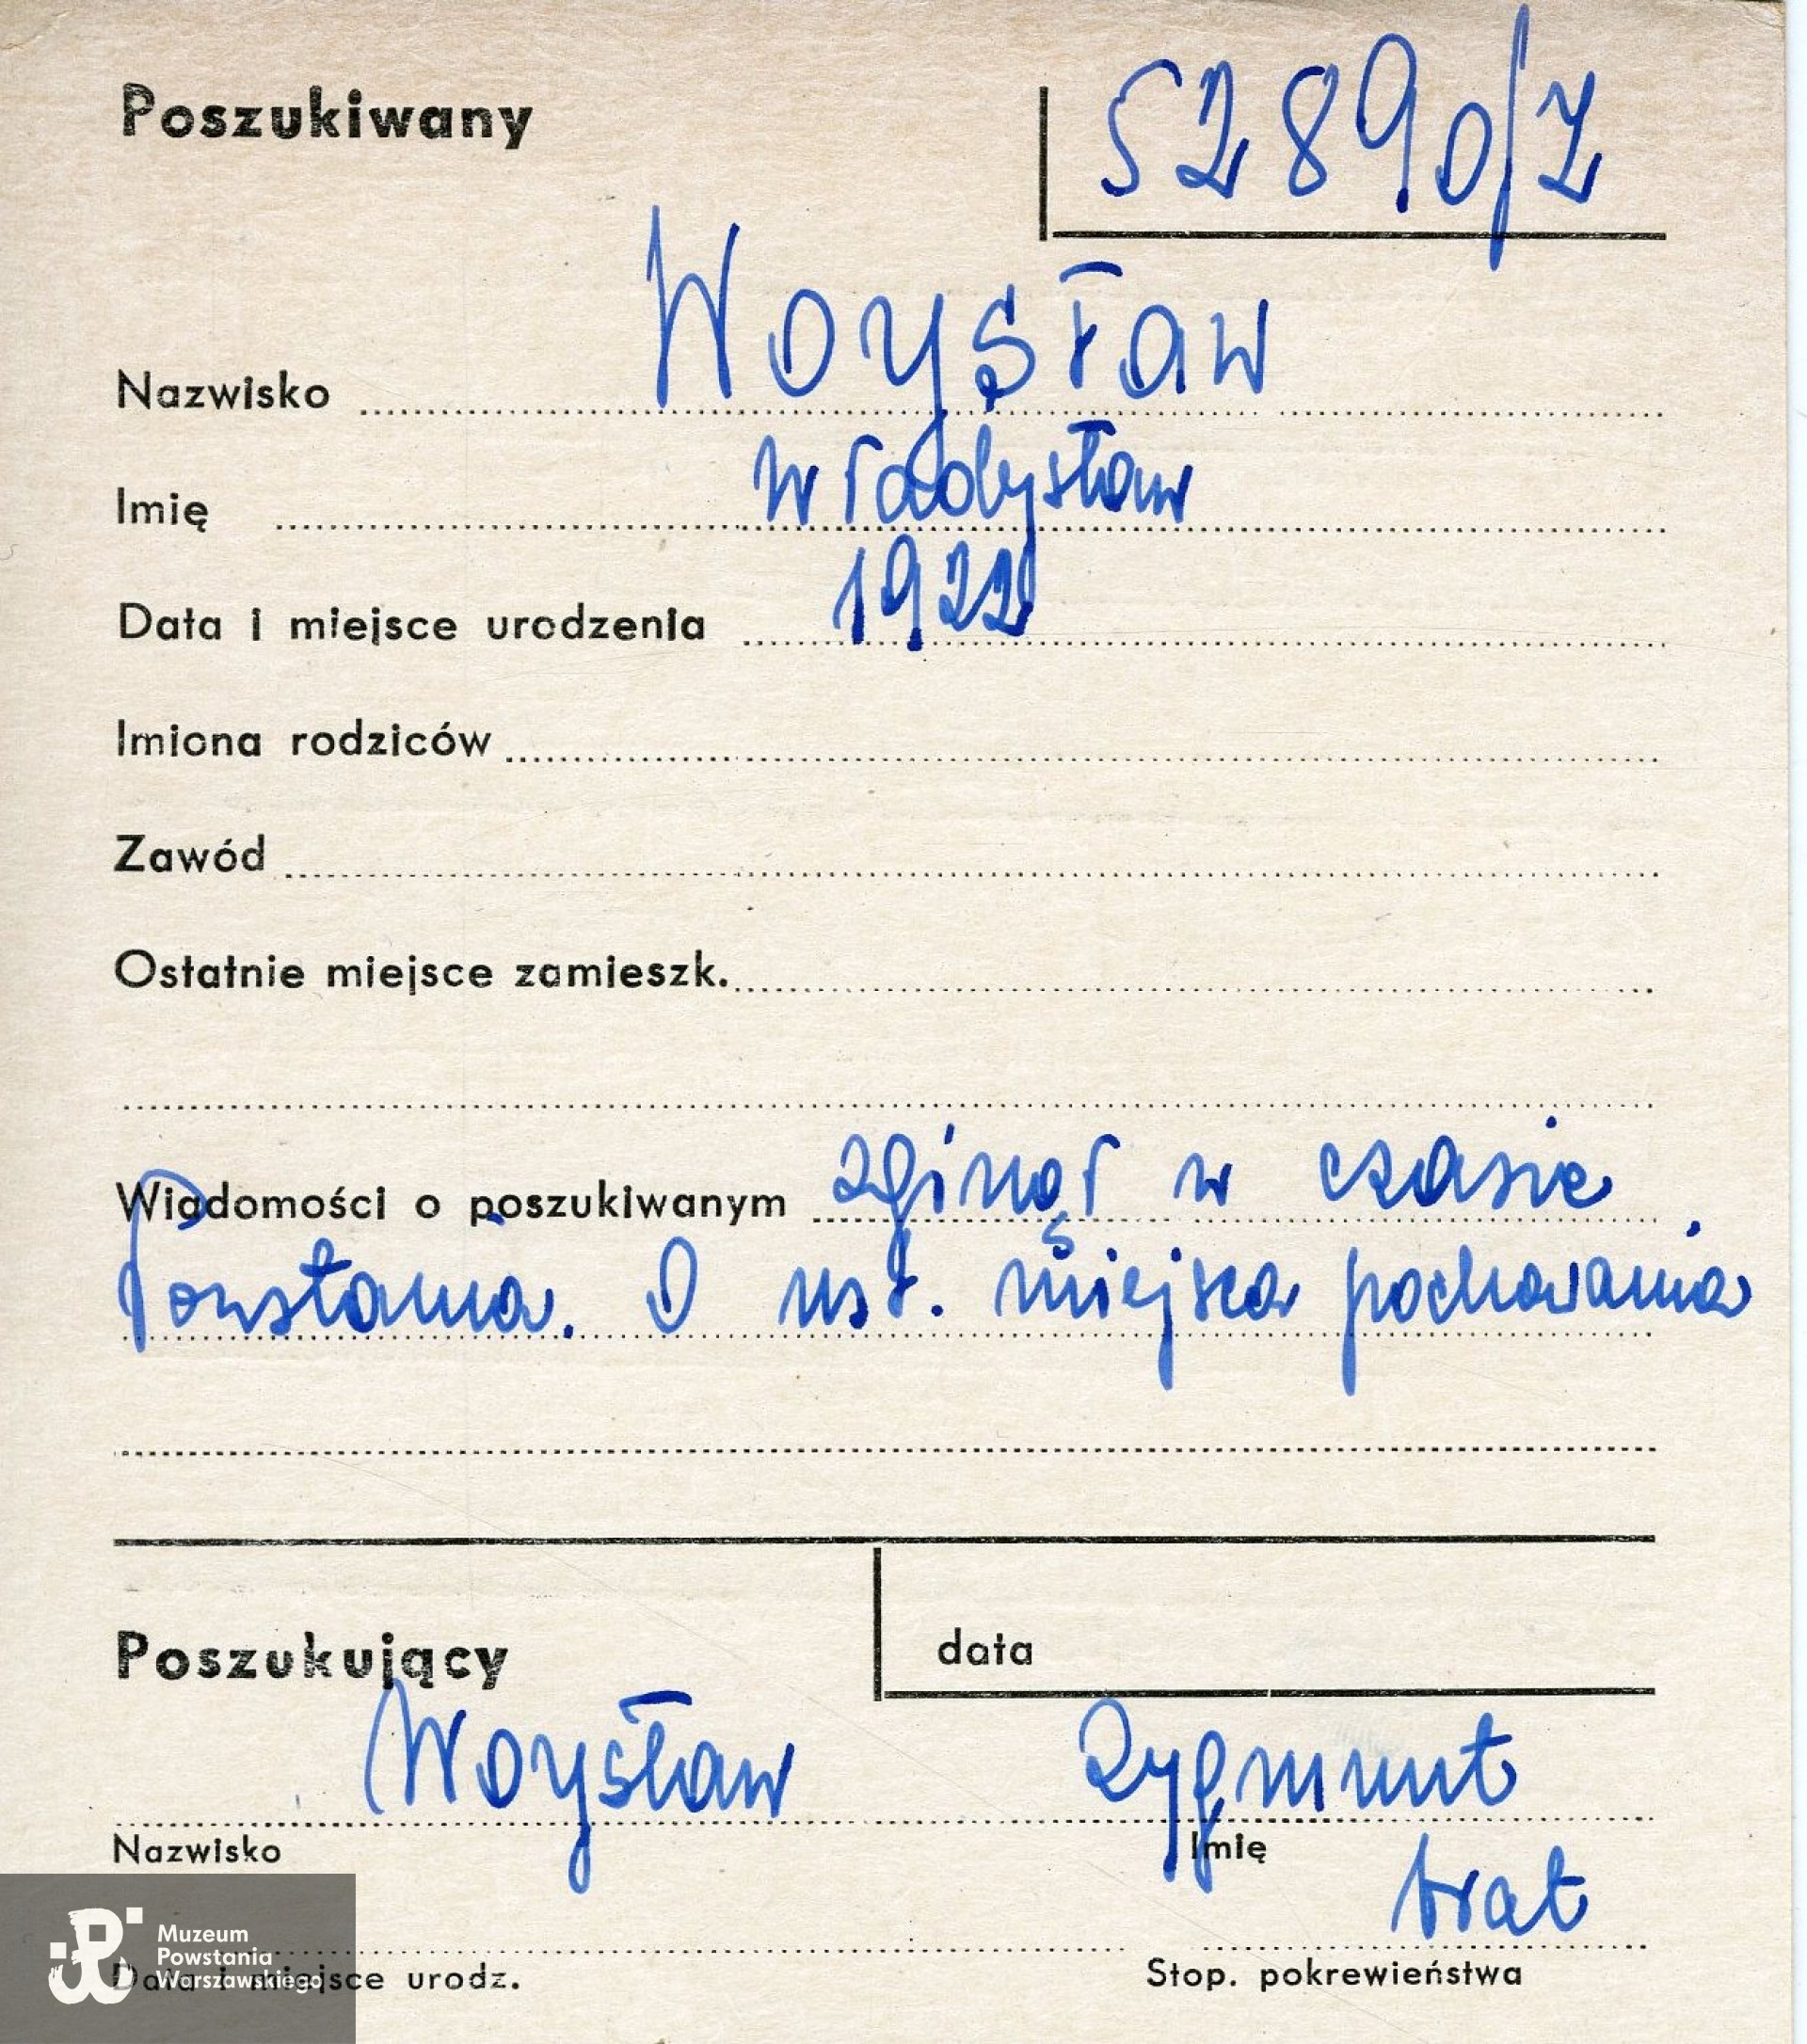 Poszukiwany
52890/Z
Nazwisko Woysław
Imię Władysław
Data i miejsce urodzenia 1922
Imiona rodziców
Zawód
Ostatnie miejsce zamieszk.
Wiadomości o poszukiwanym zginął w czasie
Powstania. O ust. miejsca pochowania
Poszukujący
data
Woysław Zygmunt
Nazwisko Imię
brat
Data i miejsce urodz. Stop. pokrewieństwa
Muzeum
Powstania
Warszawskiego